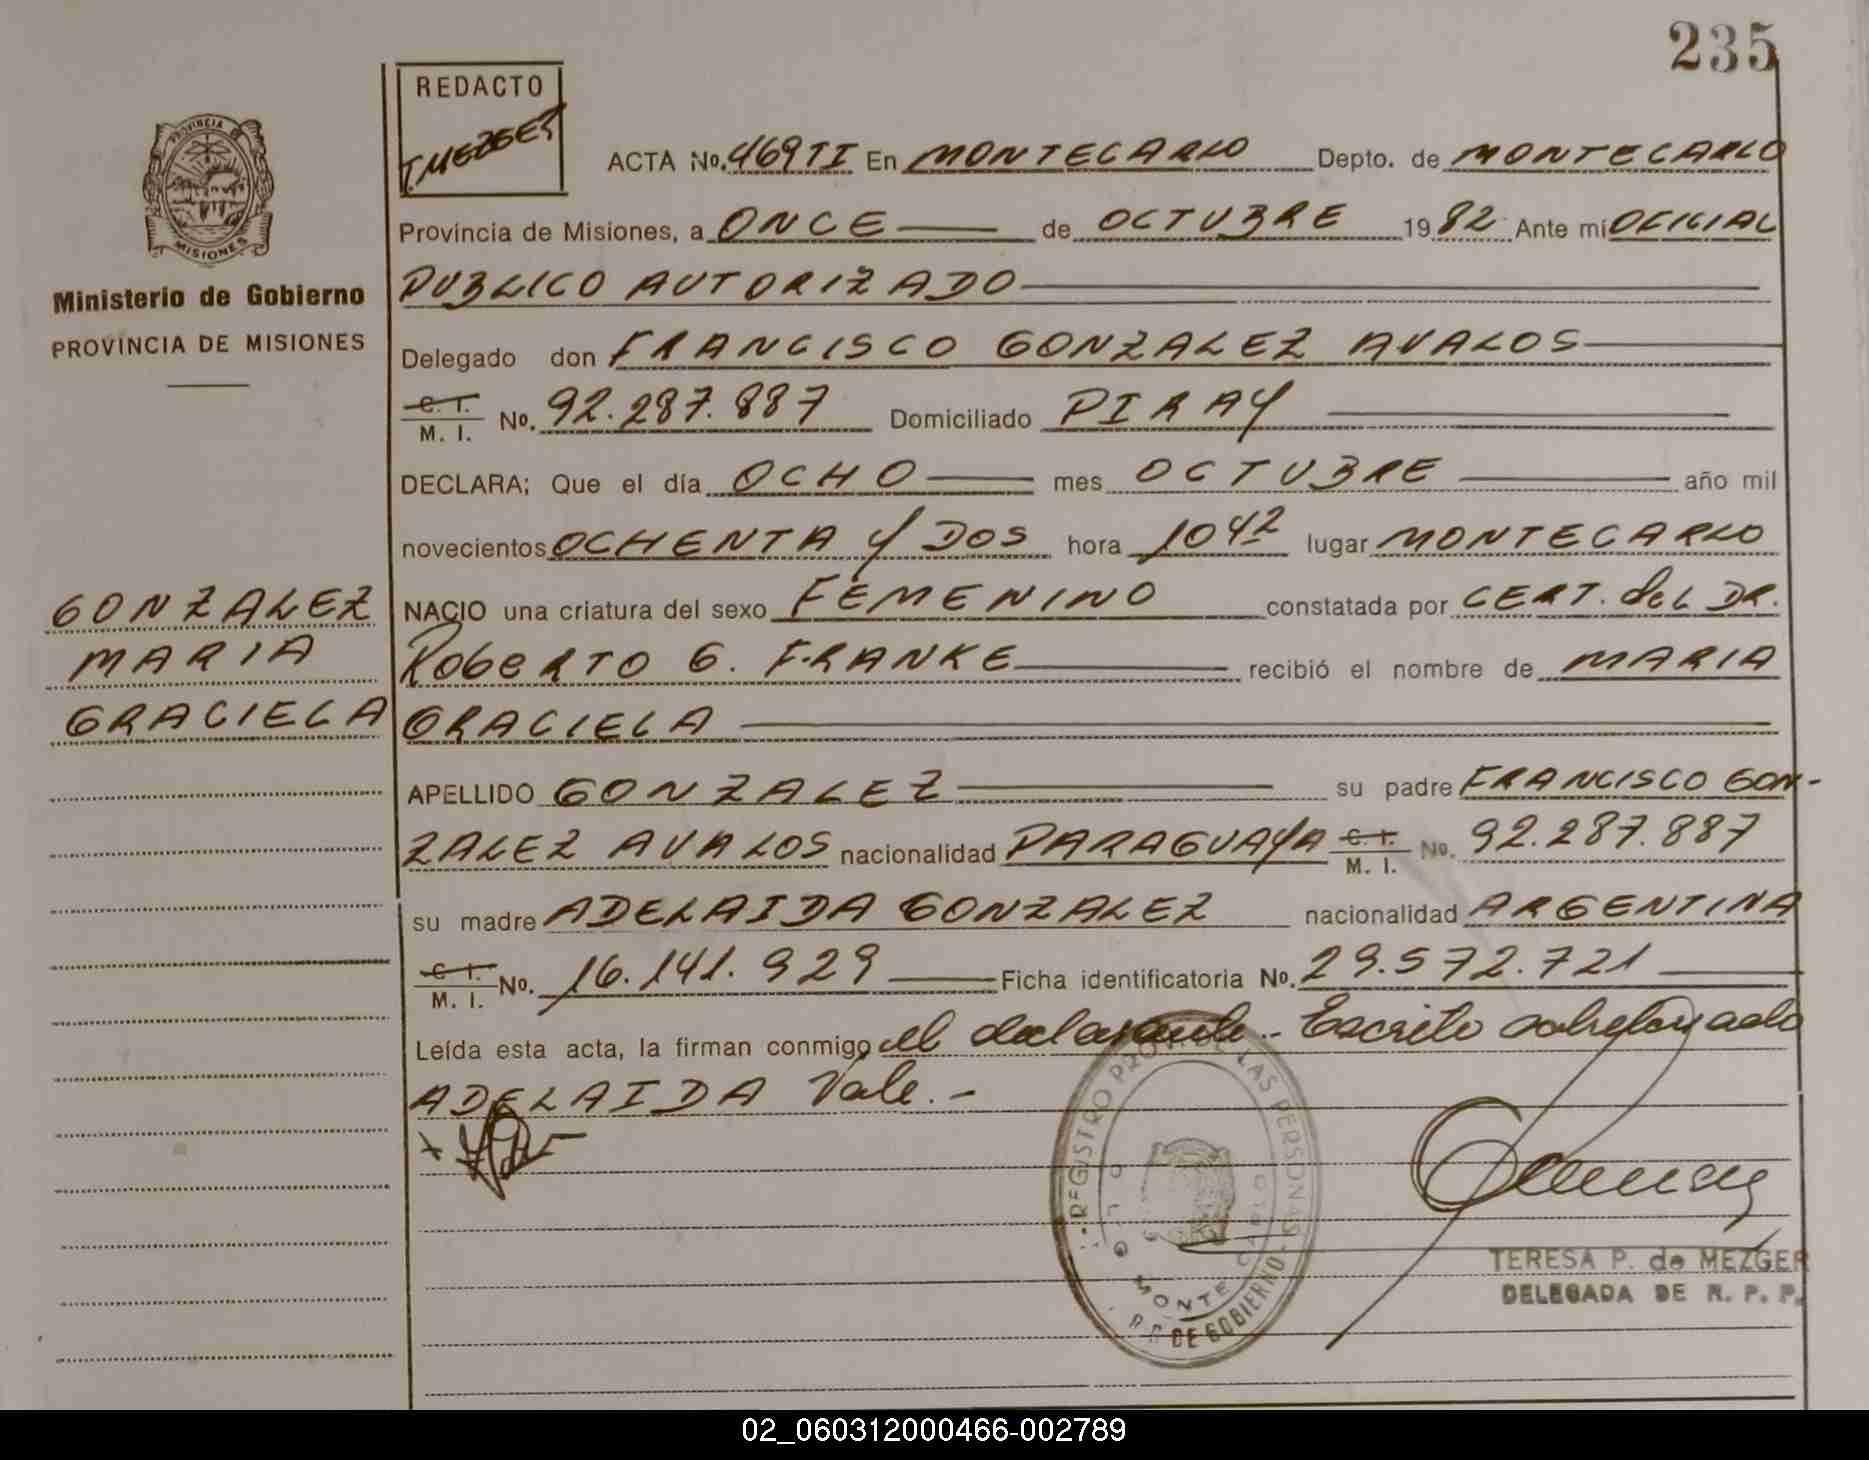 235
REDACTO
T. MEZGER
PROVINCIA
MISIONES
Ministerio de Gobierno
PROVINCIA DE MISIONES
ACTA No. 469 TI En MONTECARLO Depto. de MONTECARLO
Provincia de Misiones, a ONCE de OCTUBRE 1982 Ante mí OFICIAL
PUBLICO AUTORIZADO
Delegado don FRANCISCO GONZALEZ AVALOS
C. I. M. I. No. 92.287.887 Domiciliado PIRAY
DECLARA; Que el día OCHO mes OCTUBRE año mil
novecientos OCHENTA Y DOS hora 10 42 lugar MONTECARLO
GONZALEZ
MARIA
GRACIELA
NACIO una criatura del sexo FEMENINO constatada por CERT. del DR.
ROBERTO G. FRANKE recibió el nombre de MARIA
GRACIELA
APELLIDO GONZALEZ su padre FRANCISCO GON-
ZALEZ AVALOS nacionalidad PARAGUAYA C. I. M. I. No. 92.287.887
su madre ADELAIDA GONZALEZ nacionalidad ARGENTINA
C. I. M. I. No. 16.141.929 Ficha identificatoria No. 29.572.721
Leída esta acta, la firman conmigo el declarante.- Escrito sobreborrado
ADELAIDA Vale.-
REGISTRO PROV. DE LAS PERSONAS
MONTE CARLO
DE GOBIERNO
TERESA P. de MEZGER
DELEGADA DE R. P. P.
02_060312000466-002789